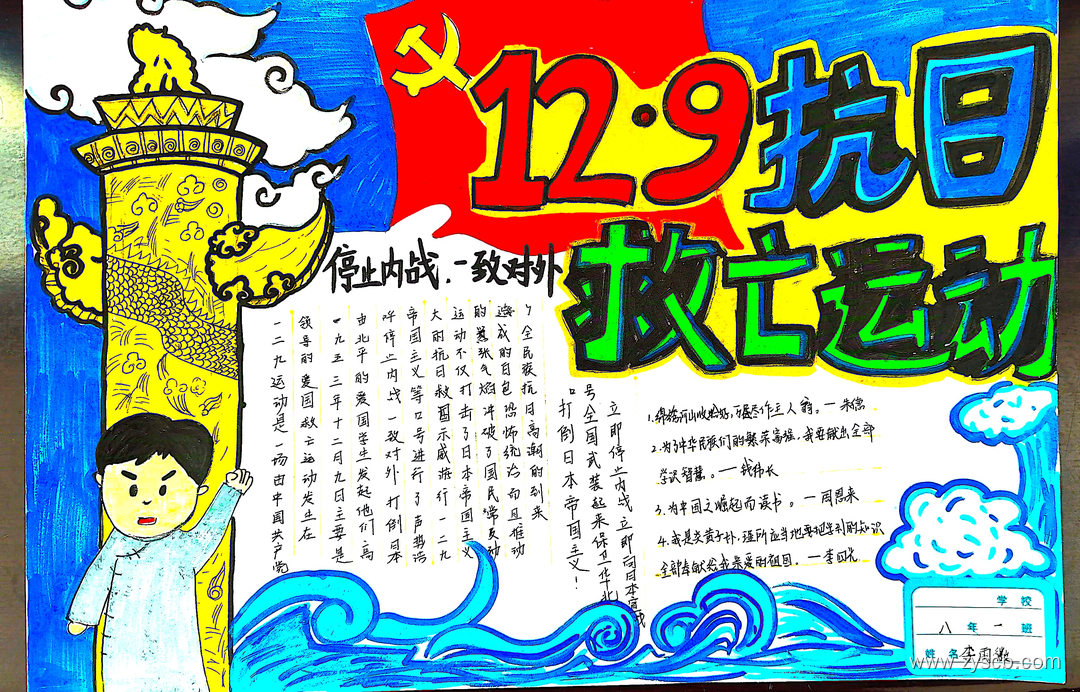 12·9抗日
救亡运动
停止内战.一致对外
一二九运动是一场由中国共产党
领导的爱国救亡运动发生在
一九五三年十二月九日主要是
由北平的爱国学生发起他们高
呼停止内战一致对外打倒日本
帝国主义等口号进行了声势浩
大的抗日救国示威游行一二九
运动不仅打击了日本帝国主义
的嚣张气焰冲破了国民党反动
造成的白色恐怖统治而且推动
了全民族抗日高潮的到来
口打倒日本帝国主义！
号全国武装起来保卫华北
立即停止内战立即向日本宣战
1.锦绣河山收拾好,万民尽作主人翁。—朱德
2.为了中华民族们的繁荣富强,我要献出全部
学识智慧。—钱伟长
3.为中国之崛起而读书。—周恩来
4.我是炎黄子孙,理所应当地要把学到的知识
全部奉献给我亲爱的祖国。—李四光
学校
八年一班
姓名李雨
www.zyscb.com